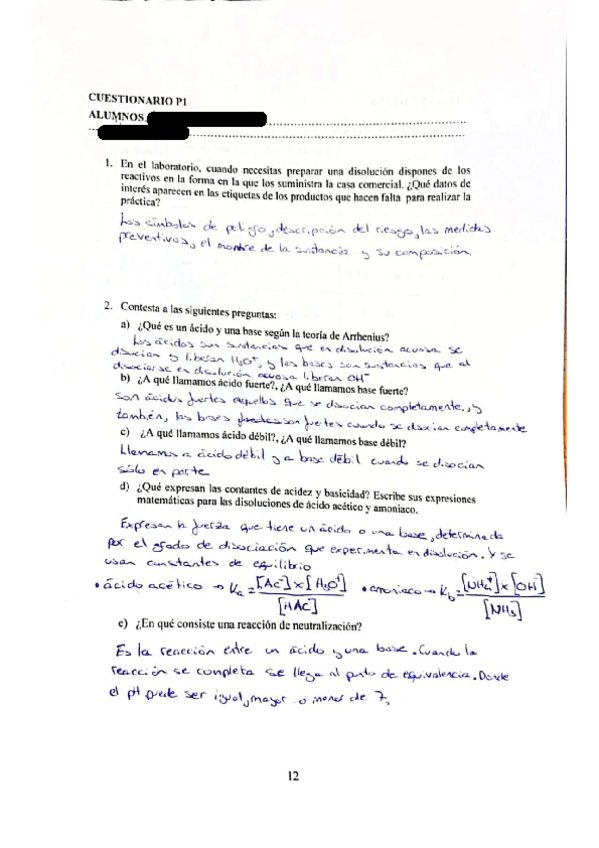 CUESTIONARIO P1
ALUMNOS.
1. En el laboratorio, cuando necesitas preparar una disolución dispones de los
reactivos en la forma en la que los suministra la casa comercial. ¿Qué datos de
interés aparecen en las etiquetas de los productos que hacen falta para realizar la
práctica?
Los símbolos de peligro, descripción del riesgo, las medidas
preventivas, el nombre de la sustancia y su composición.
2. Contesta a las siguientes preguntas:
a) ¿Qué es un ácido y una base según la teoría de Arrhenius?
Los ácidos son sustancias que en disolución acuosa se
disocian y liberan H₃O⁺, y las bases son sustancias que al
disociarse en disolución acuosa liberan OH⁻
b) ¿A qué llamamos ácido fuerte?, ¿A qué llamamos base fuerte?
Son ácidos fuertes aquellos que se disocian completamente, y
también, las bases son fuertes cuando se disocian completamente
c) ¿A qué llamamos ácido débil?, ¿A qué llamamos base débil?
Llamamos a ácido débil y a base débil cuando se disocian
sólo en parte
d) ¿Qué expresan las contantes de acidez y basicidad? Escribe sus expresiones
matemáticas para las disoluciones de ácido acético y amoniaco.
Expresan la fuerza que tiene un ácido o una base, determinada
por el grado de disociación que experimenta en disolución. Y se
usan constantes de equilibrio
• ácido acético → Ka = [AC⁻] x [H₃O⁺] / [HAC] • amoniaco → Kb = [NH₄⁺] x [OH⁻] / [NH₃]
e) ¿En qué consiste una reacción de neutralización?
Es la reacción entre un ácido y una base. Cuando la
reacción se completa se llega al punto de equivalencia. Donde
el pH puede ser igual, mayor o menor de 7.
12